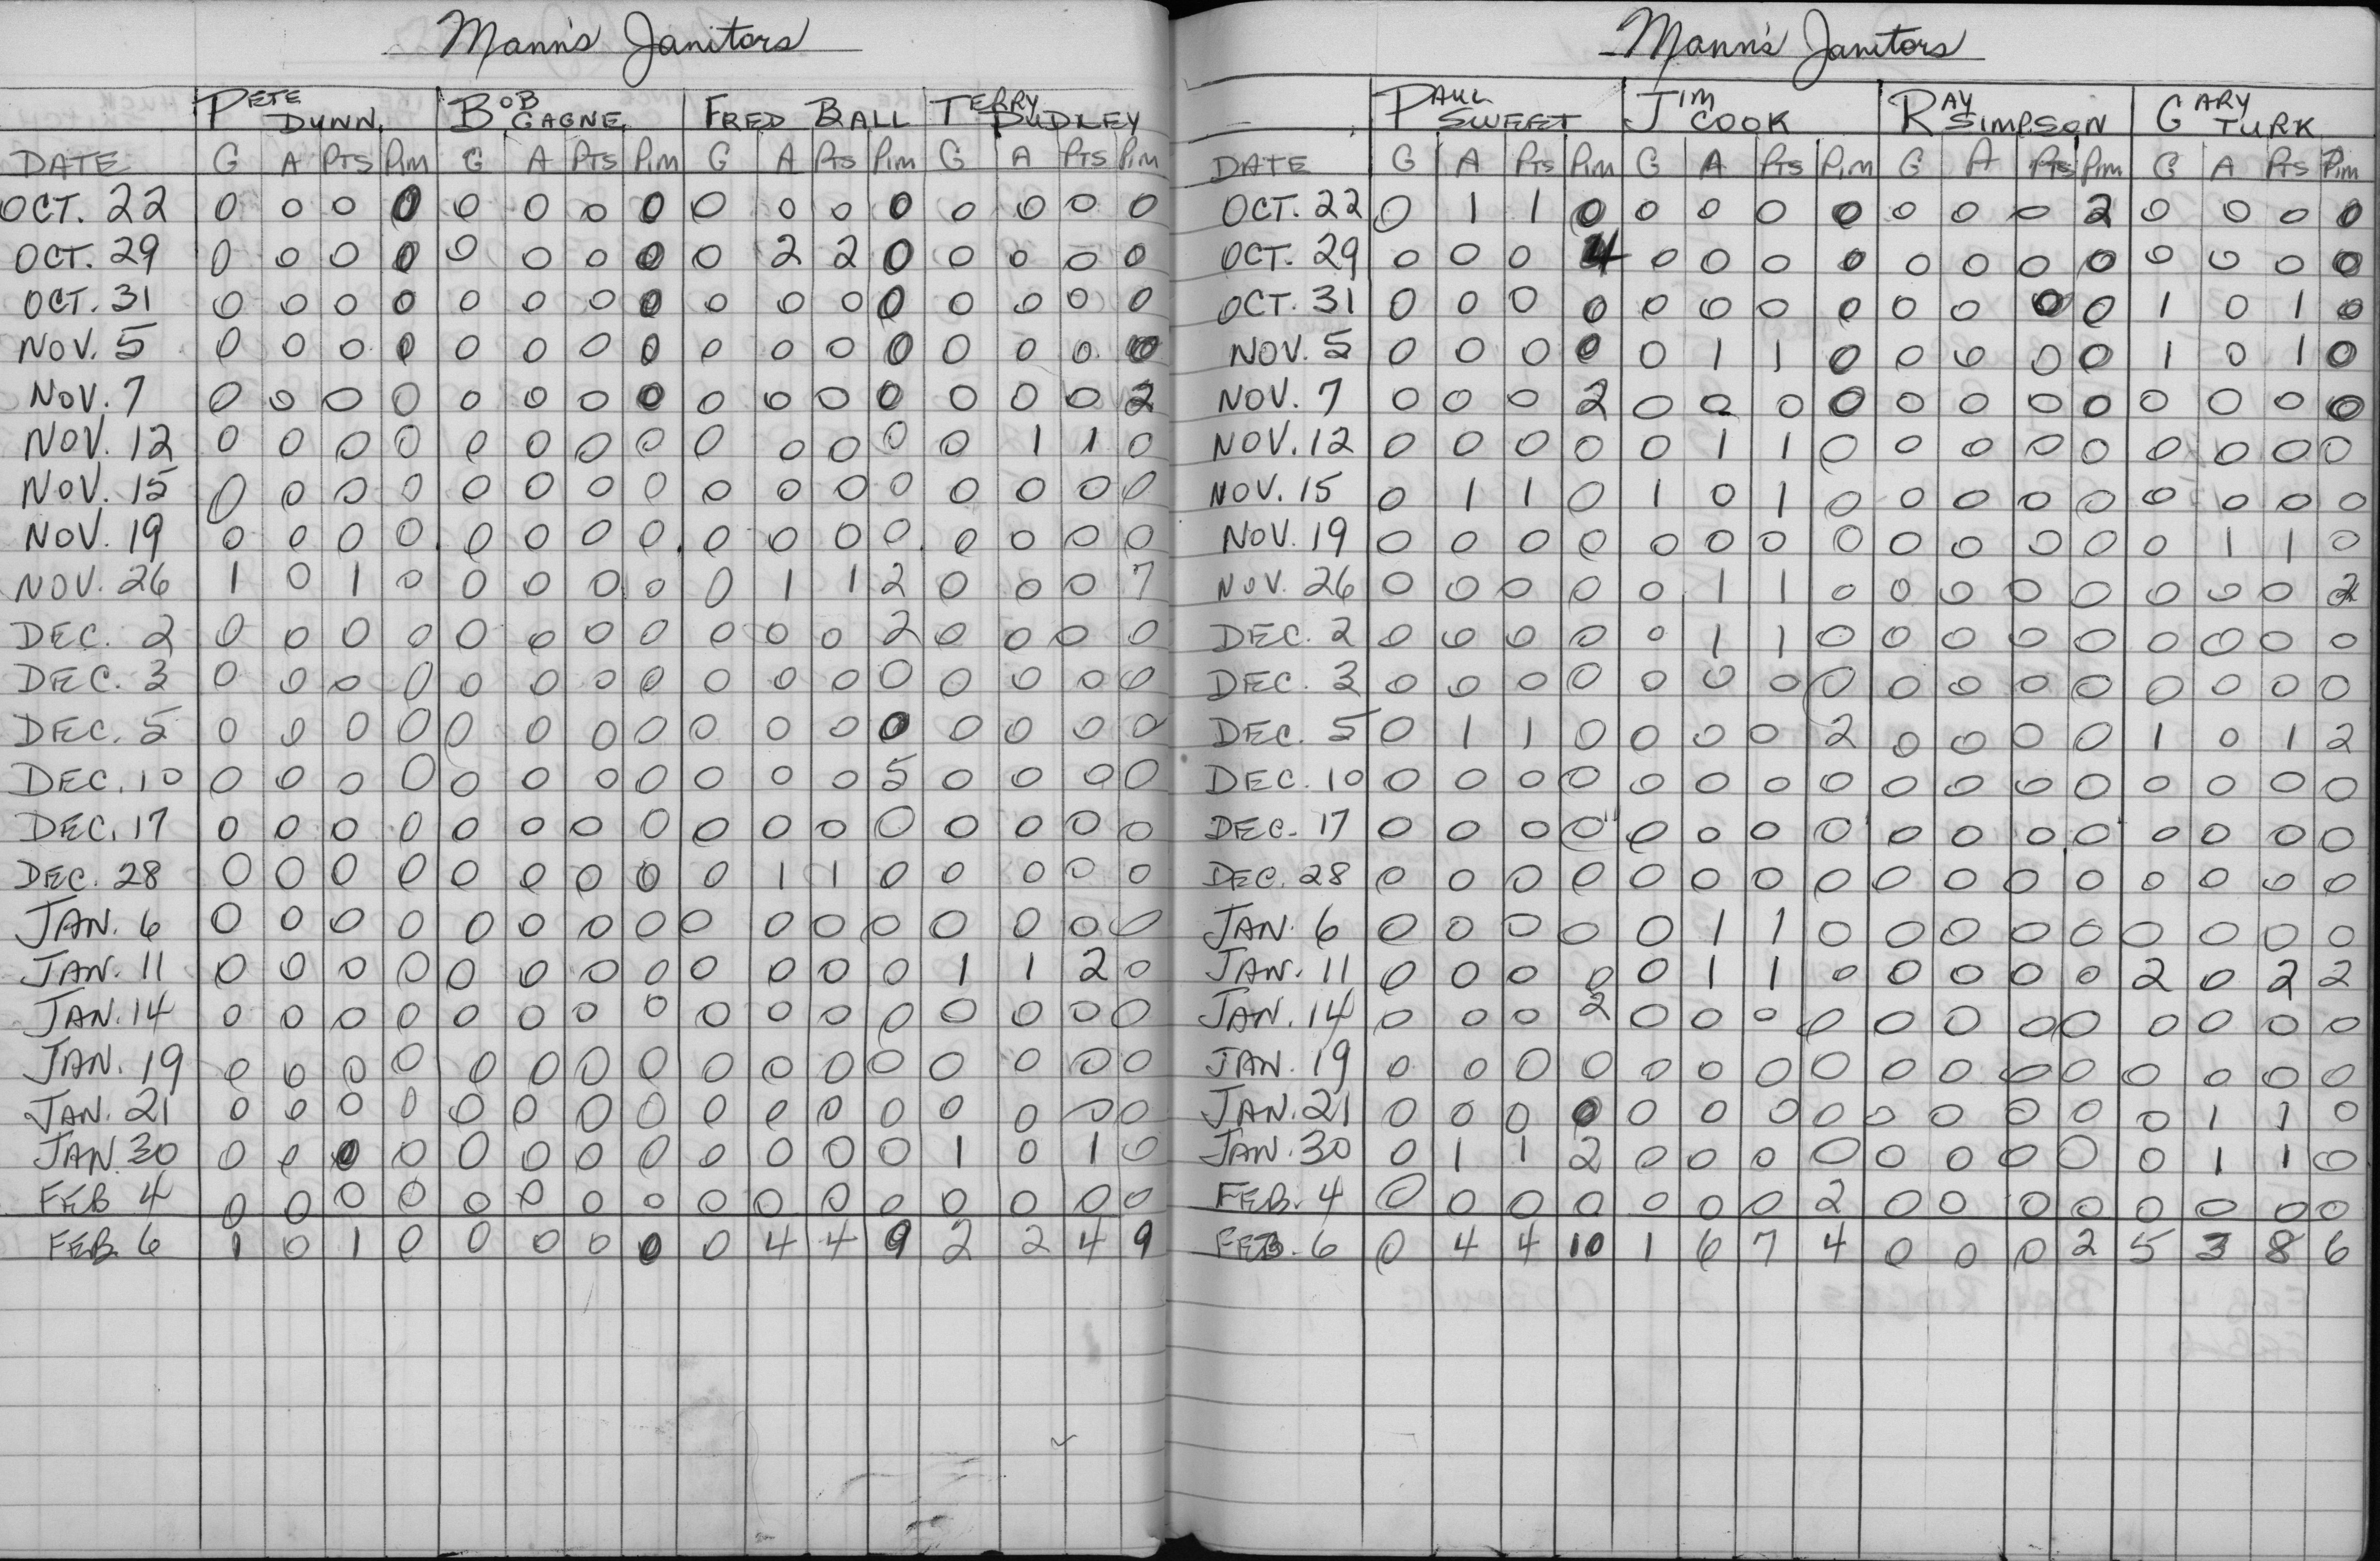 Mann's Janitors
PETE DUNN. BOB GAGNE FRED BALL TERRY DUDLEY
DATE G A PTS PIM G A PTS PIM G A PTS PIM G A PTS PIM
OCT. 22 0 0 0 0 0 0 0 0 0 0 0 0 0 0 0 0
OCT. 29 0 0 0 0 0 0 0 0 0 2 2 0 0 0 0 0
OCT. 31 0 0 0 0 0 0 0 0 0 0 0 0 0 0 0 0
NOV. 5 0 0 0 0 0 0 0 0 0 0 0 0 0 0 0 0
NOV. 7 0 0 0 0 0 0 0 0 0 0 0 0 0 0 0 2
NOV. 12 0 0 0 0 0 0 0 0 0 0 0 0 0 1 1 0
NOV. 15 0 0 0 0 0 0 0 0 0 0 0 0 0 0 0 0
NOV. 19 0 0 0 0 0 0 0 0 0 0 0 0 0 0 0 0
NOV. 26 1 0 1 0 0 0 0 0 0 1 1 2 0 0 0 7
DEC. 2 0 0 0 0 0 0 0 0 0 0 0 2 0 0 0 0
DEC. 3 0 0 0 0 0 0 0 0 0 0 0 0 0 0 0 0
DEC. 5 0 0 0 0 0 0 0 0 0 0 0 0 0 0 0 0
DEC. 10 0 0 0 0 0 0 0 0 0 0 0 5 0 0 0 0
DEC. 17 0 0 0 0 0 0 0 0 0 0 0 0 0 0 0 0
DEC. 28 0 0 0 0 0 0 0 0 0 1 1 0 0 0 0 0
JAN. 6 0 0 0 0 0 0 0 0 0 0 0 0 0 0 0 0
JAN. 11 0 0 0 0 0 0 0 0 0 0 0 0 1 1 2 0
JAN. 14 0 0 0 0 0 0 0 0 0 0 0 0 0 0 0 0
JAN. 19 0 0 0 0 0 0 0 0 0 0 0 0 0 0 0 0
JAN. 21 0 0 0 0 0 0 0 0 0 0 0 0 0 0 0 0
JAN. 30 0 0 0 0 0 0 0 0 0 0 0 0 1 0 1 0
FEB 4 0 0 0 0 0 0 0 0 0 0 0 0 0 0 0 0
FEB. 6 1 0 1 0 0 0 0 0 0 4 4 9 2 2 4 9
Mann's Janitors
PAUL SWEET JIM COOK RAY SIMPSON GARY TURK
DATE G A PTS PIM G A PTS PIM G A PTS PIM G A PTS PIM
OCT. 22 0 1 1 0 0 0 0 0 0 0 0 2 0 0 0 0
OCT. 29 0 0 0 4 0 0 0 0 0 0 0 0 0 0 0 0
OCT. 31 0 0 0 0 0 0 0 0 0 0 0 0 1 0 1 0
NOV. 5 0 0 0 0 0 1 1 0 0 0 0 0 1 0 1 0
NOV. 7 0 0 0 2 0 0 0 0 0 0 0 0 0 0 0 0
NOV. 12 0 0 0 0 0 1 1 0 0 0 0 0 0 0 0 0
NOV. 15 0 1 1 0 1 0 1 0 0 0 0 0 0 0 0 0
NOV. 19 0 0 0 0 0 0 0 0 0 0 0 0 0 1 1 0
NOV. 26 0 0 0 0 0 1 1 0 0 0 0 0 0 0 0 2
DEC. 2 0 0 0 0 0 1 1 0 0 0 0 0 0 0 0 0
DEC. 3 0 0 0 0 0 0 0 0 0 0 0 0 0 0 0 0
DEC. 5 0 1 1 0 0 0 0 2 0 0 0 0 1 0 1 2
DEC. 10 0 0 0 0 0 0 0 0 0 0 0 0 0 0 0 0
DEC. 17 0 0 0 0 0 0 0 0 0 0 0 0 0 0 0 0
DEC. 28 0 0 0 0 0 0 0 0 0 0 0 0 0 0 0 0
JAN. 6 0 0 0 0 0 1 1 0 0 0 0 0 0 0 0 0
JAN. 11 0 0 0 0 0 1 1 0 0 0 0 0 2 0 2 2
JAN. 14 0 0 0 2 0 0 0 0 0 0 0 0 0 0 0 0
JAN. 19 0 0 0 0 0 0 0 0 0 0 0 0 0 0 0 0
JAN. 21 0 0 0 0 0 0 0 0 0 0 0 0 0 1 1 0
JAN. 30 0 1 1 2 0 0 0 0 0 0 0 0 0 1 1 0
FEB. 4 0 0 0 0 0 0 0 2 0 0 0 0 0 0 0 0
FEB. 6 0 4 4 10 1 6 7 4 0 0 0 2 5 3 8 6